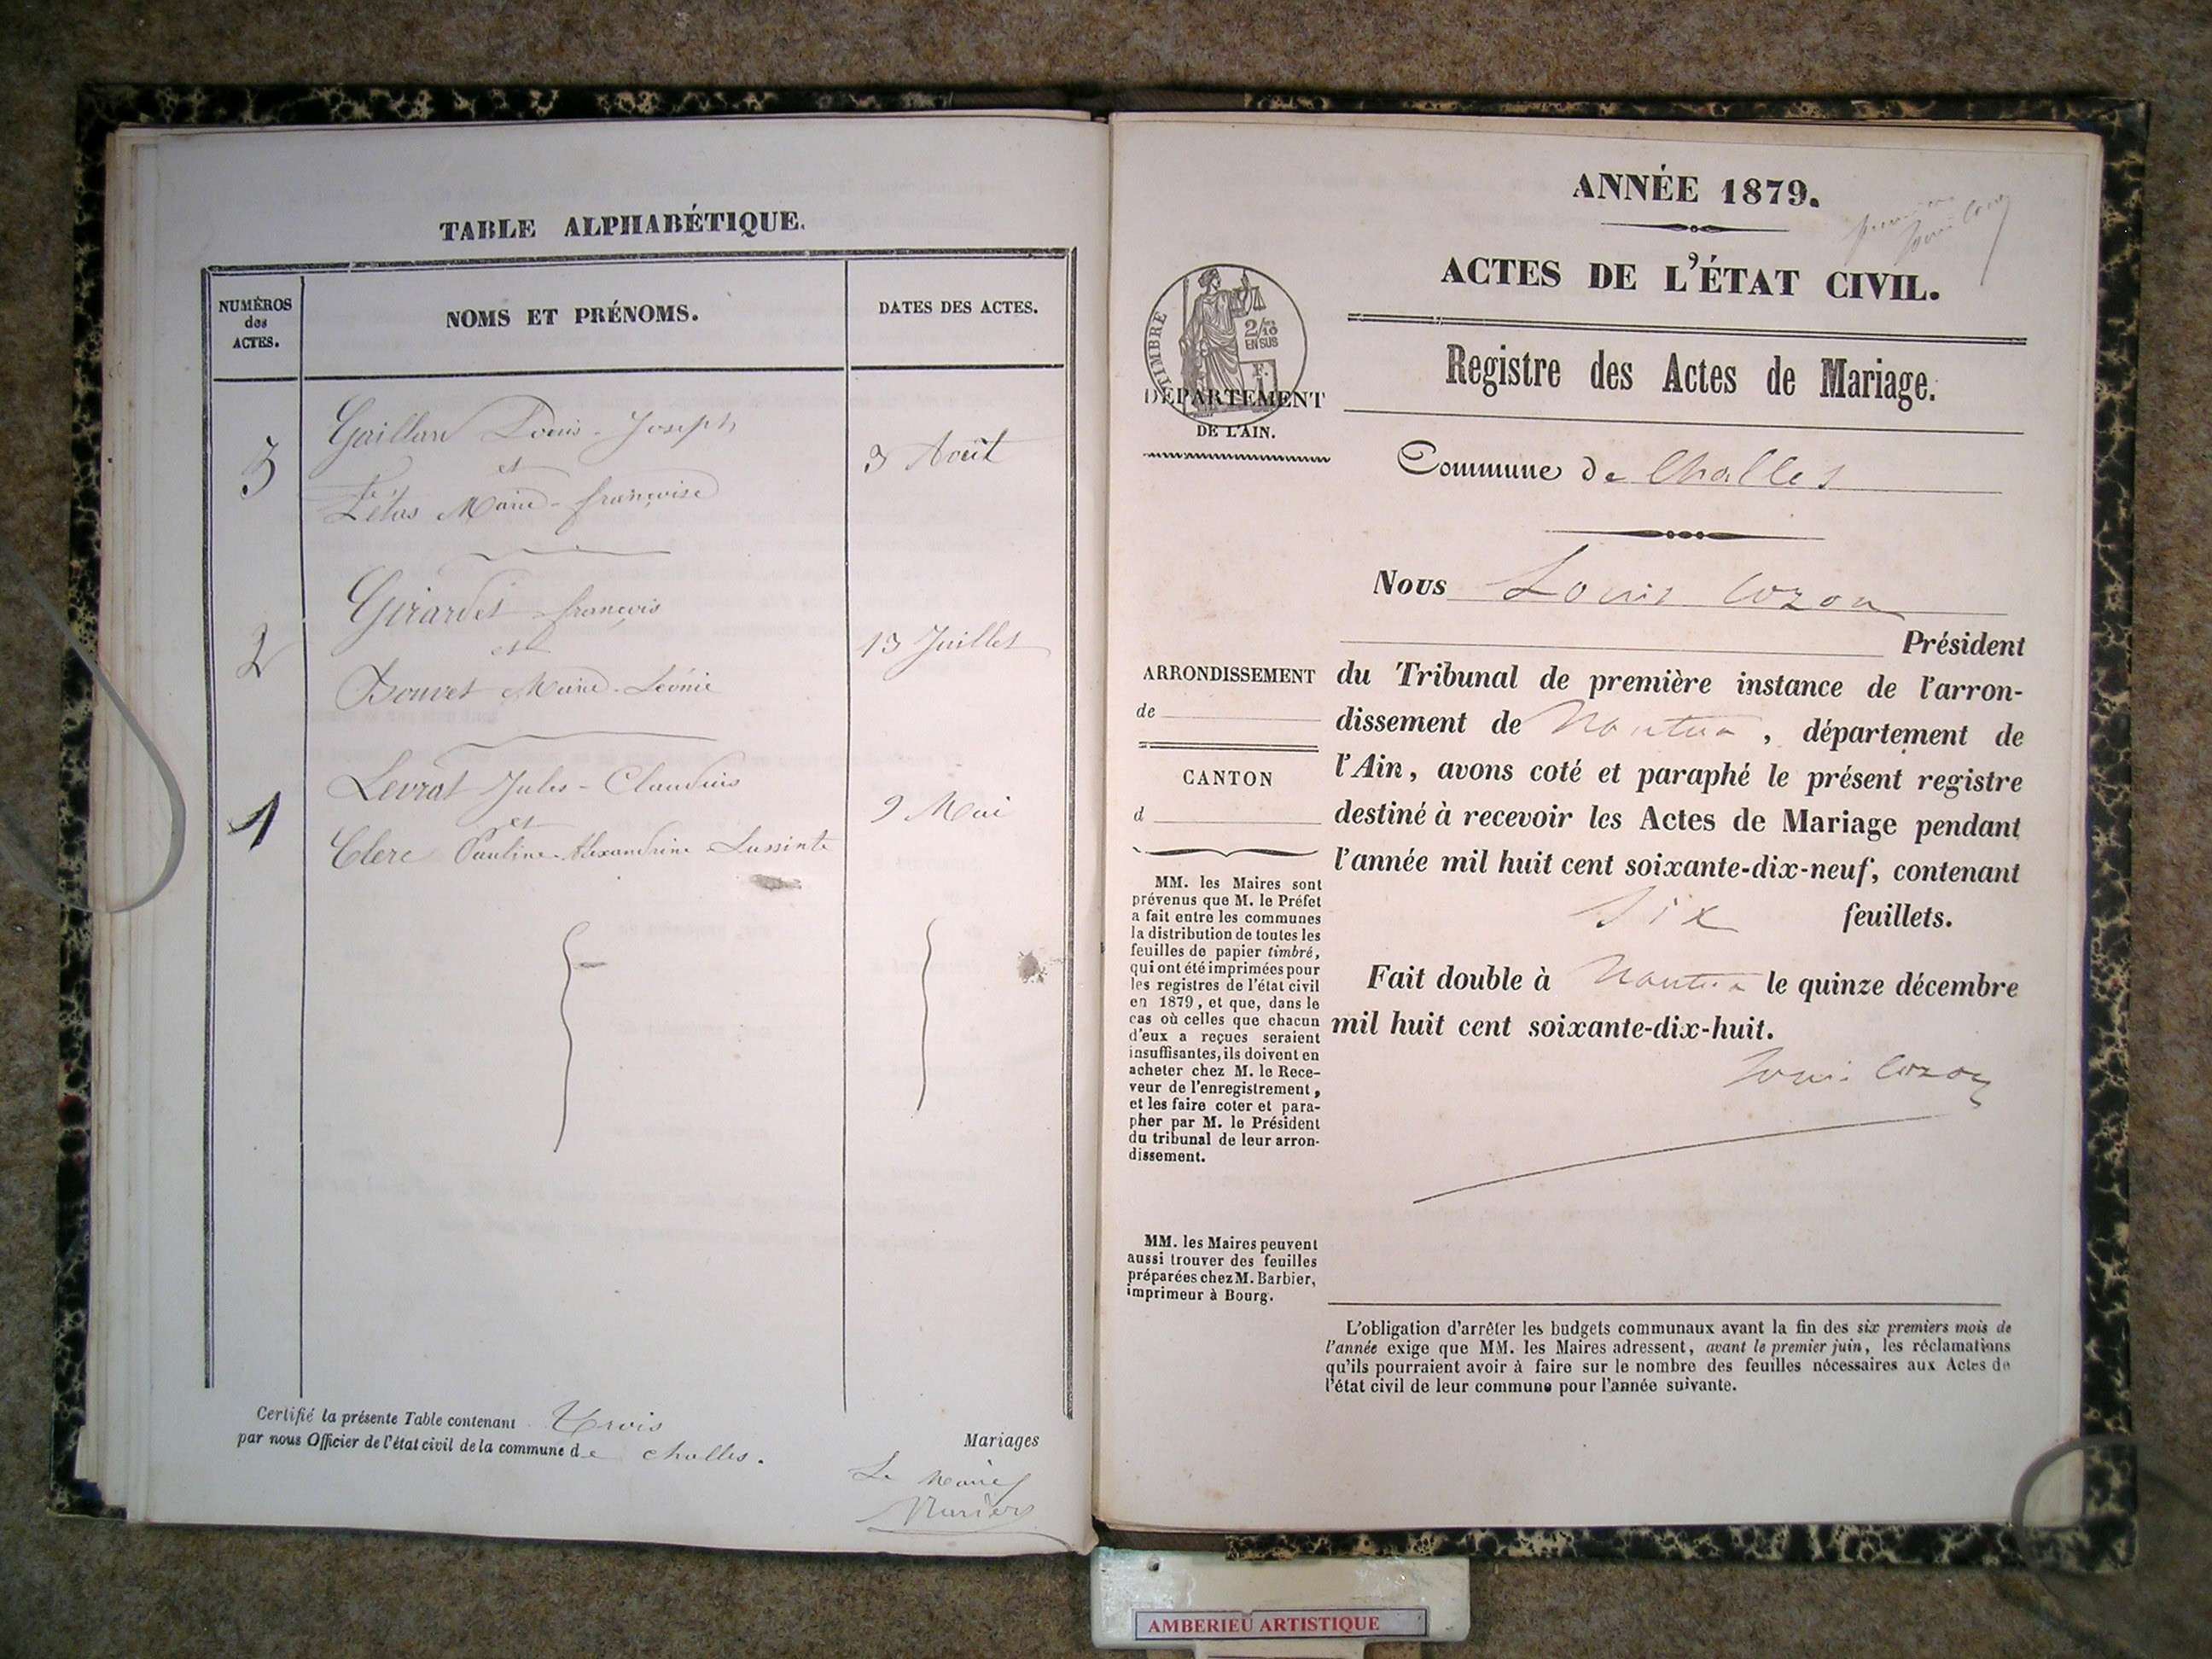 TABLE ALPHABÉTIQUE.
NUMÉROS
des
ACTES.
NOMS ET PRÉNOMS.
DATES DES ACTES.
3
Gaillard Louis-Joseph
et
Marie-françoise
3 Août
2
Girardet françois
et
Bouvet Marie-Léonie
13 Juillet
1
Levrat Jules-Claudius
et
Clerc Pauline-Alexandrine
9 Mai
Certifié la présente Table contenant Trois
Mariages
par nous Officier de l'état civil de la commune de Challes.
Le Maire
ANNÉE 1879.
ACTES DE L'ÉTAT CIVIL.
Registre des Actes de Mariage.
TIMBRE
2/10
EN SUS
F.
DÉPARTEMENT
DE L'AIN.
Commune de Challes
Nous Louis Cozon
Président
du Tribunal de première instance de l'arron-
dissement de Nantua, département de
l'Ain, avons coté et paraphé le présent registre
destiné à recevoir les Actes de Mariage pendant
l'année mil huit cent soixante-dix-neuf, contenant
six feuillets.
Fait double à Nantua le quinze décembre
mil huit cent soixante-dix-huit.
Louis Cozon
ARRONDISSEMENT
de
CANTON
d
MM. les Maires sont
prévenus que M. le Préfet
a fait entre les communes
la distribution de toutes les
feuilles de papier timbré,
qui ont été imprimées pour
les registres de l'état civil
en 1879, et que, dans le
cas où celles que chacun
d'eux a reçues seraient
insuffisantes, ils doivent en
acheter chez M. le Rece-
veur de l'enregistrement,
et les faire coter et para-
pher par M. le Président
du tribunal de leur arron-
dissement.
MM. les Maires peuvent
aussi trouver des feuilles
préparées chez M. Barbier,
imprimeur à Bourg.
L'obligation d'arrêter les budgets communaux avant la fin des six premiers mois de
l'année exige que MM. les Maires adressent, avant le premier juin, les réclamations
qu'ils pourraient avoir à faire sur le nombre des feuilles nécessaires aux Actes de
l'état civil de leur commune pour l'année suivante.
AMBERIEU ARTISTIQUE